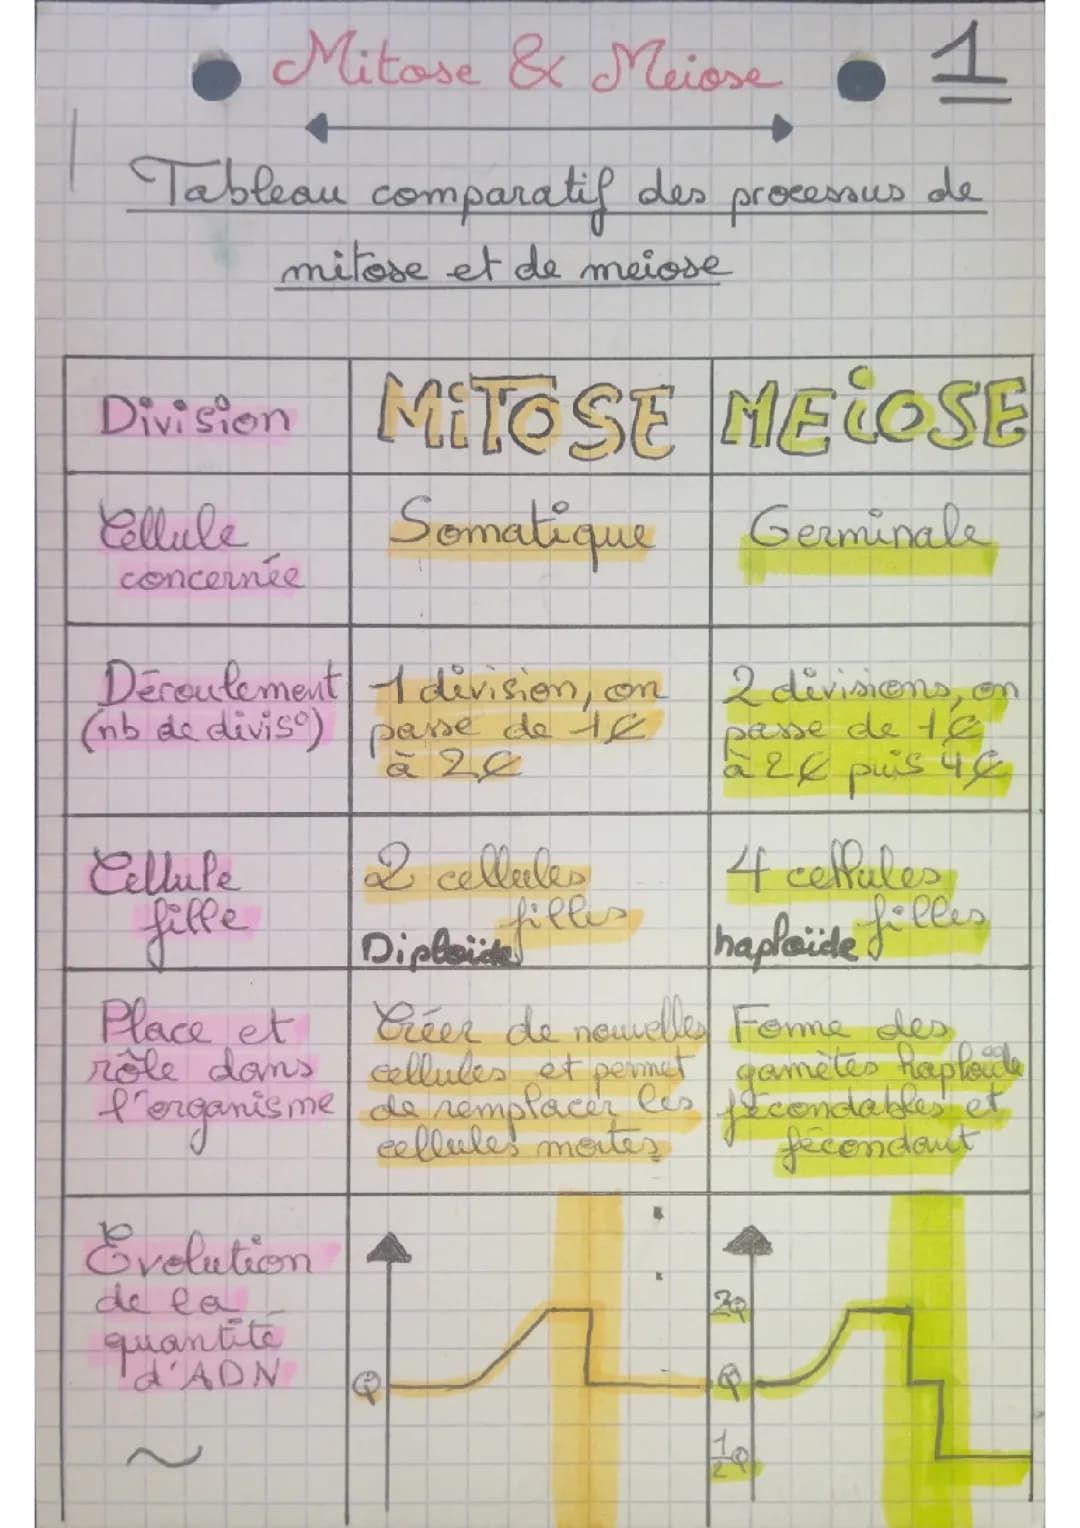 Mitose & Meiose
1
Tableau comparatif des processus de
mitose et de meiose
Division
MiTOSE
MEiOSE
Cellule
concernée
Somatique
Germinale
Déroulement
(nb de divis°)
1 division, on
passe de 1₵
à 2₵
2 divisions, on
passe de 1₵
à 2₵ puis 4₵
Cellule
fille
2 cellules
filles
Diploïde
4 cellules
filles
haploïde
Place et
rôle dans
l'organisme
Créer de nouvelles
cellules et permet
de remplacer les
cellules mortes
Forme des
gamètes haploïde
fécondables et
fécondant
Évolution
de la
quantité
d'ADN
Q
2Q
Q
1/2Q